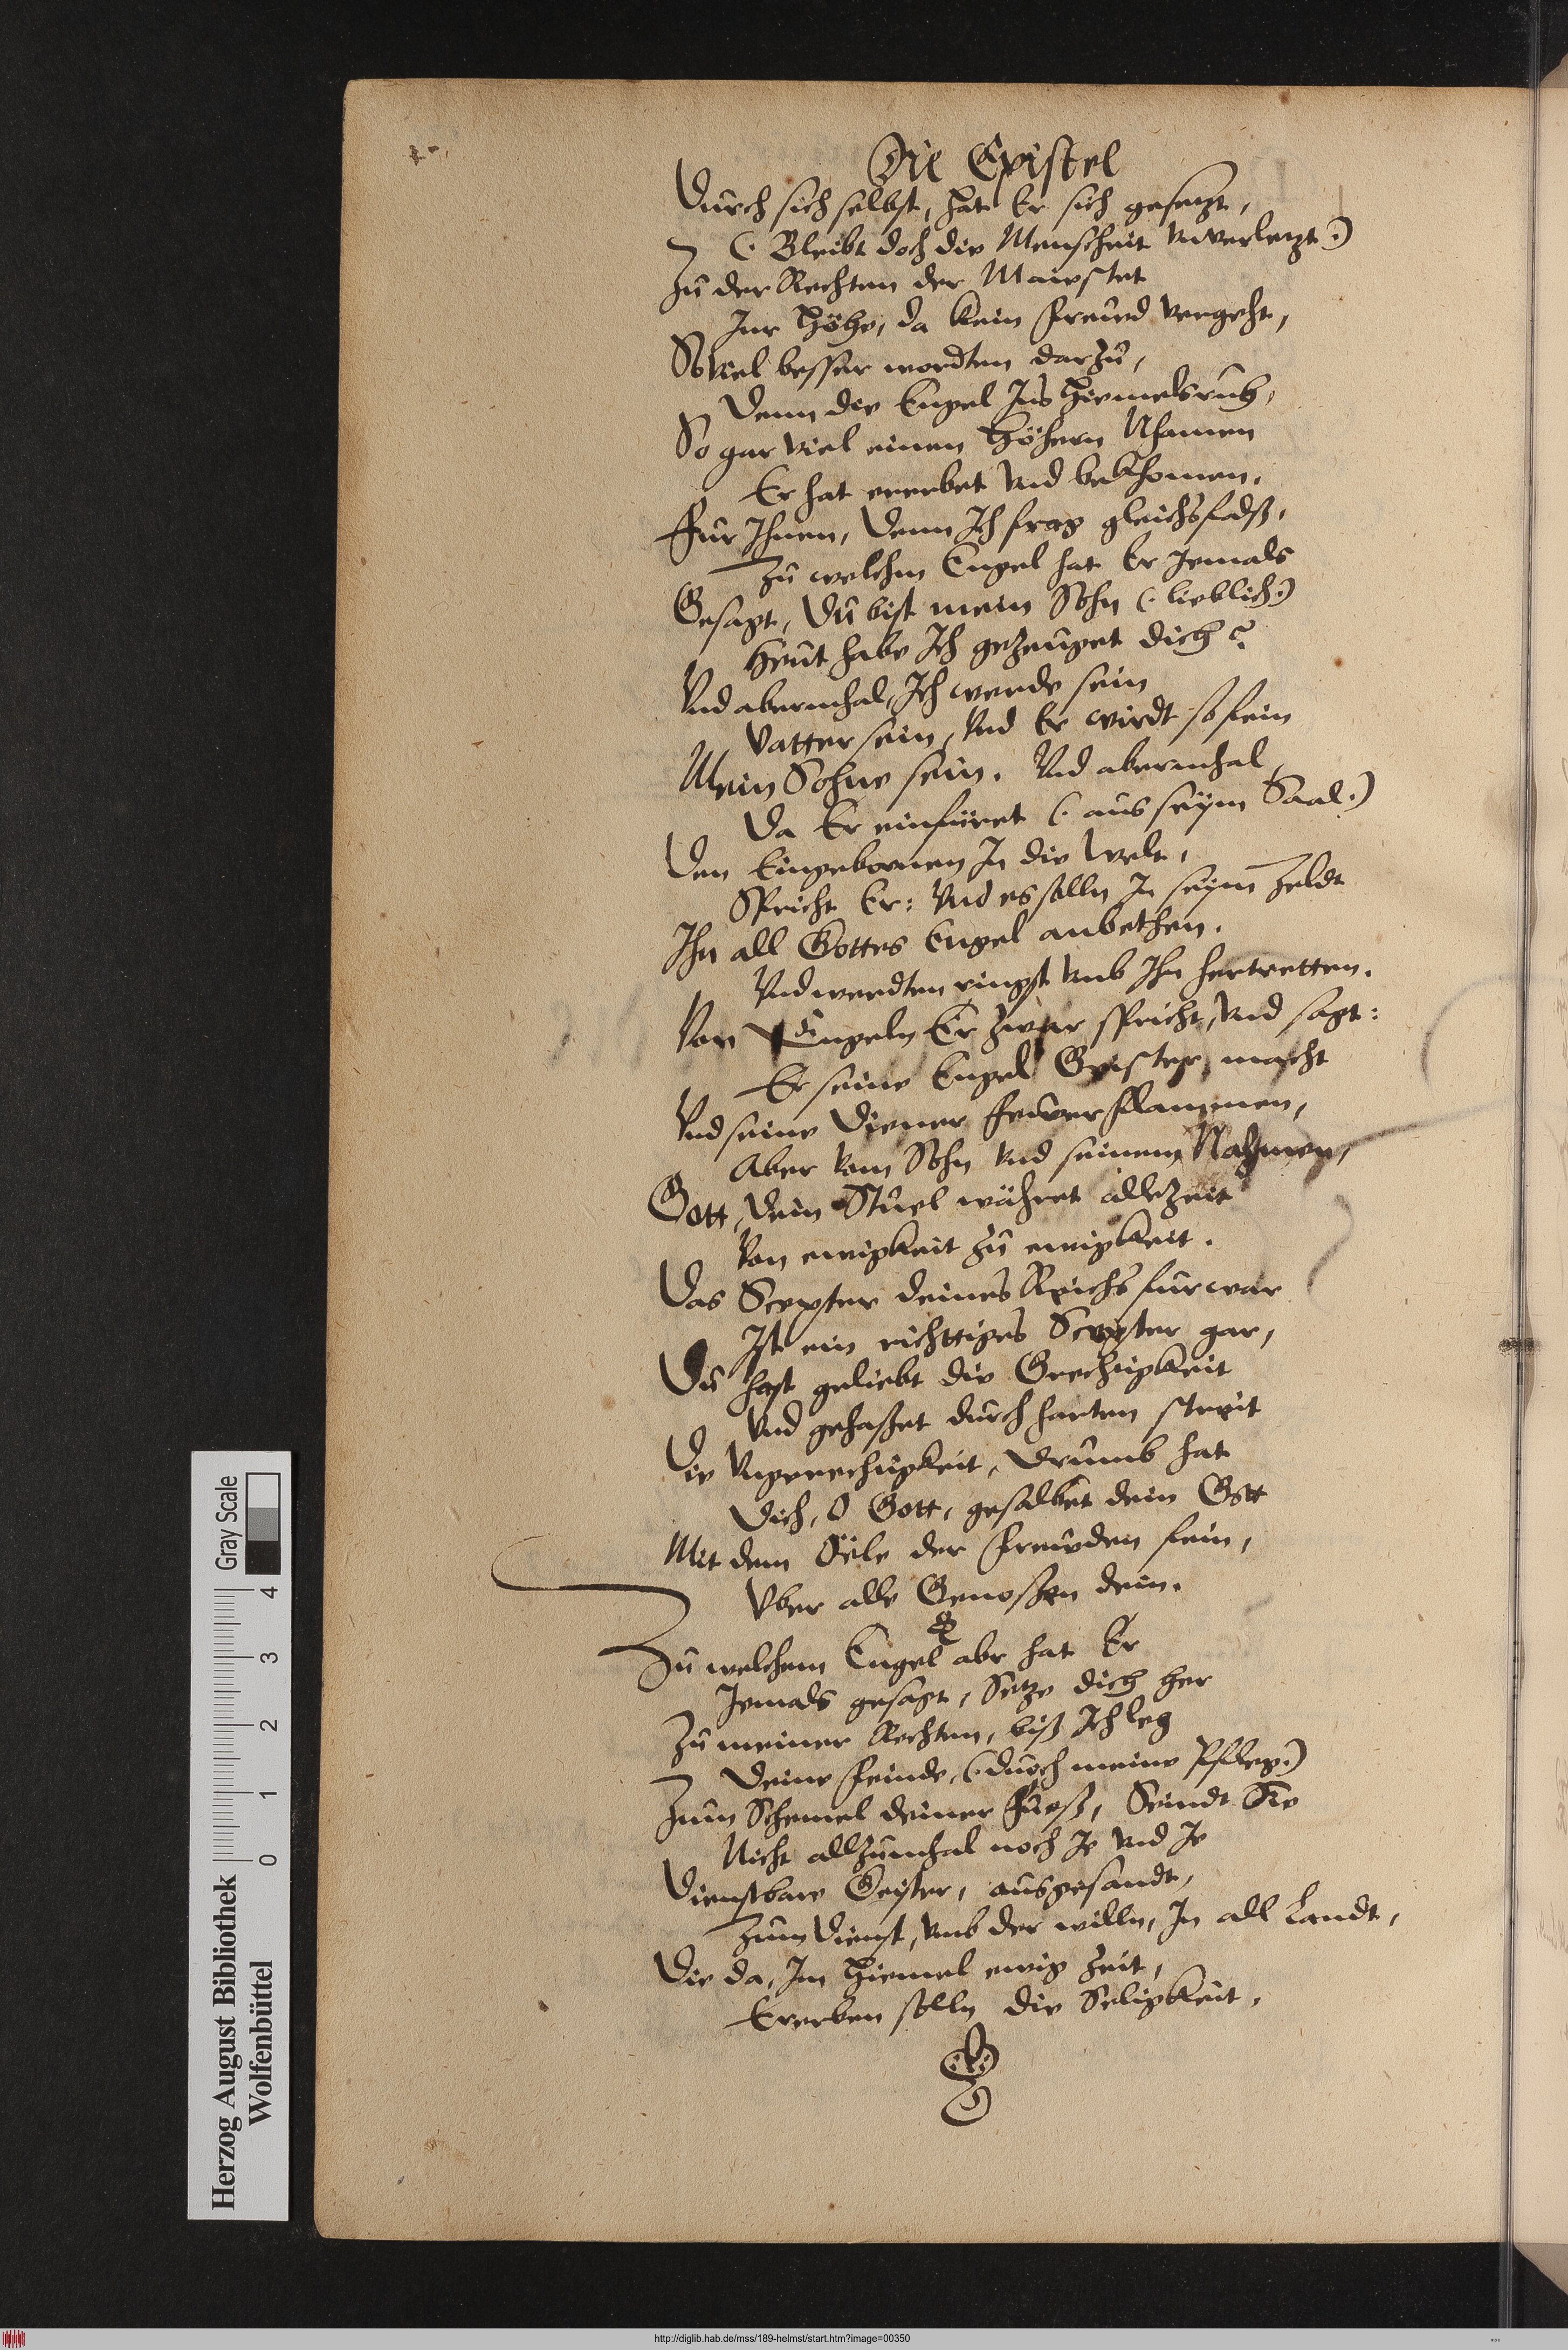 Die Epistel
Durch sich selbst, hat Er sich gesetzt,
(: Bleibt doch die Menscheit vnverletzt :)
Zu der Rechten der Maiestet
Inn Höhe, da kein freund vergeht,
So viel besser wordten darzu,
Denn die Engel Ins Himelsruh,
So gar viel einen Höhern Nhamen
Er hat ererbet vnd bekhomen,
Für Ihnen, Denn Ich frag gleichsfalß,
Zu welchm Engel hat Er Jemals
Gesagt, Du bist mein Sohn (: lieblich :)
Heut habe Ich gezeuget dich?
Vnd abermhal, Ich werde sein
Vatter sein, Vnd Er wirdt so fein
Mein Sohne sein. Vnd abermhal,
Da Er einfüret (: aus seym Saal :)
Den Eingebornen In die Welt,
Spricht Er: Vnd es solln In seym Zeldt
Ihn all Gottes Engel anbethen.
Vnd werdten ringst vmb Ihn hertretten.
Von Engeln Er zwar spricht, vnd sagt:
Er seine Engel Geister macht
Vnd seine Diener Feuwerflammen,
Aber vom Sohn vnd seinem Nahmen,
Gott, dein Stuel währet allezeit
Von ewigkeit zu ewigkeit.
Das Scepter deines Reichs furwar
Ist ein richttiges Scepter gar,
Du hast geliebt die Grechtigkeit
Vnd gehaßet durch harten streit
Die Vngerechtigkeit, Drumb hat
Dich, O Gott, gesalbet dein Gott
Mit dem Öele der Freuden fein,
Vber alle Genoßen dein.
Zu welchem Engel abr hat Er
Jemals gesagt, Setze dich her
Zu meiner Rechten, biß Ich leg
Deine Feinde, (: durch meine Pfleg :)
Zum Schemel deiner Fueß, Seindt Sie
Nicht allzumhal noch Je vnd Je
Dienstbare Geister, ausgesandt,
Zum Dienst, vmb der willn, In all Landt,
Die da, Im Himel ewig Zeit,
Ererben solln die Seligkeit.
Herzog August Bibliothek
Wolfenbüttel
0 1 2 3 4
Gray Scale
http://diglib.hab.de/mss/189-helmst/start.htm?image=00350